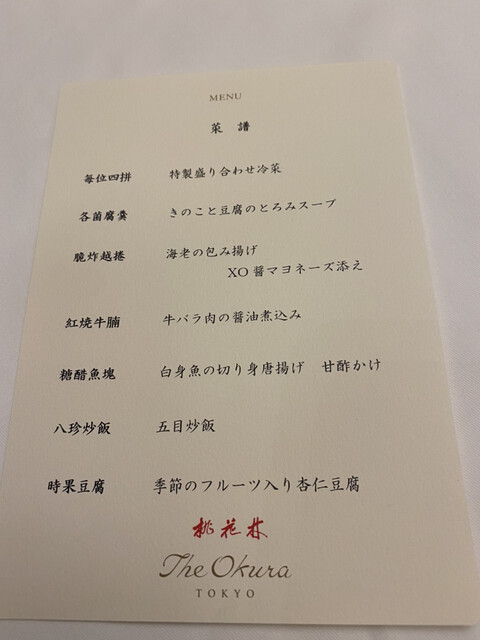 MENU
菜 譜
毎位四拼 特製盛り合わせ冷菜
各菌腐羹 きのこと豆腐のとろみスープ
脆炸越捲 海老の包み揚げ
XO醤マヨネーズ添え
紅焼牛腩 牛バラ肉の醤油煮込み
糖醋魚塊 白身魚の切り身唐揚げ 甘酢かけ
八珍炒飯 五目炒飯
時果豆腐 季節のフルーツ入り杏仁豆腐
桃花林
The Okura
TOKYO